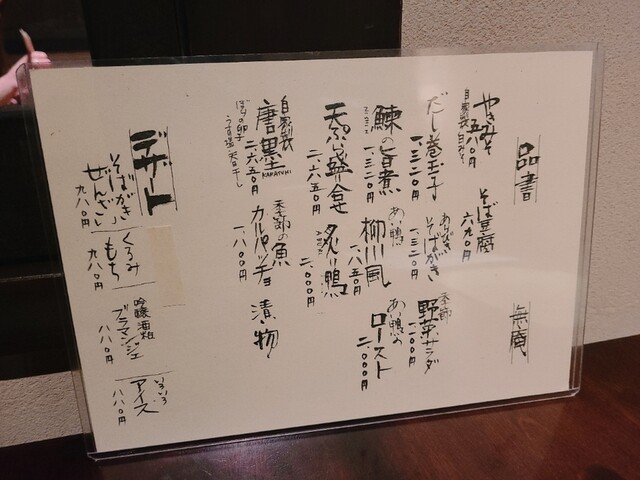 品書
無庵
やきみそ
五八〇円
自家製 白みそ
そば豆腐
六九〇円
だし巻玉子
一、三二〇円
あらびき
そばがき
一、三二〇円
季節
野菜サラダ
一、二〇〇円
鰊の旨煮
一、三二〇円
あい鴨
柳川風
一、八五〇円
あい鴨の
ロースト
二、〇〇〇円
天ぷら盛合
二、六五〇円
炙り鴨
二、〇〇〇円
自家製
唐墨
KARASUMI
二、六五〇円
ぼらの卵
うす塩 天日干し
季節の魚
カルパッチョ
一、八〇〇円
漬物
デザート
そばがき
ぜんざい
九八〇円
くるみ
もち
九八〇円
吟醸酒粕
ブラマンジェ
八八〇円
いろいろ
アイス
八八〇円